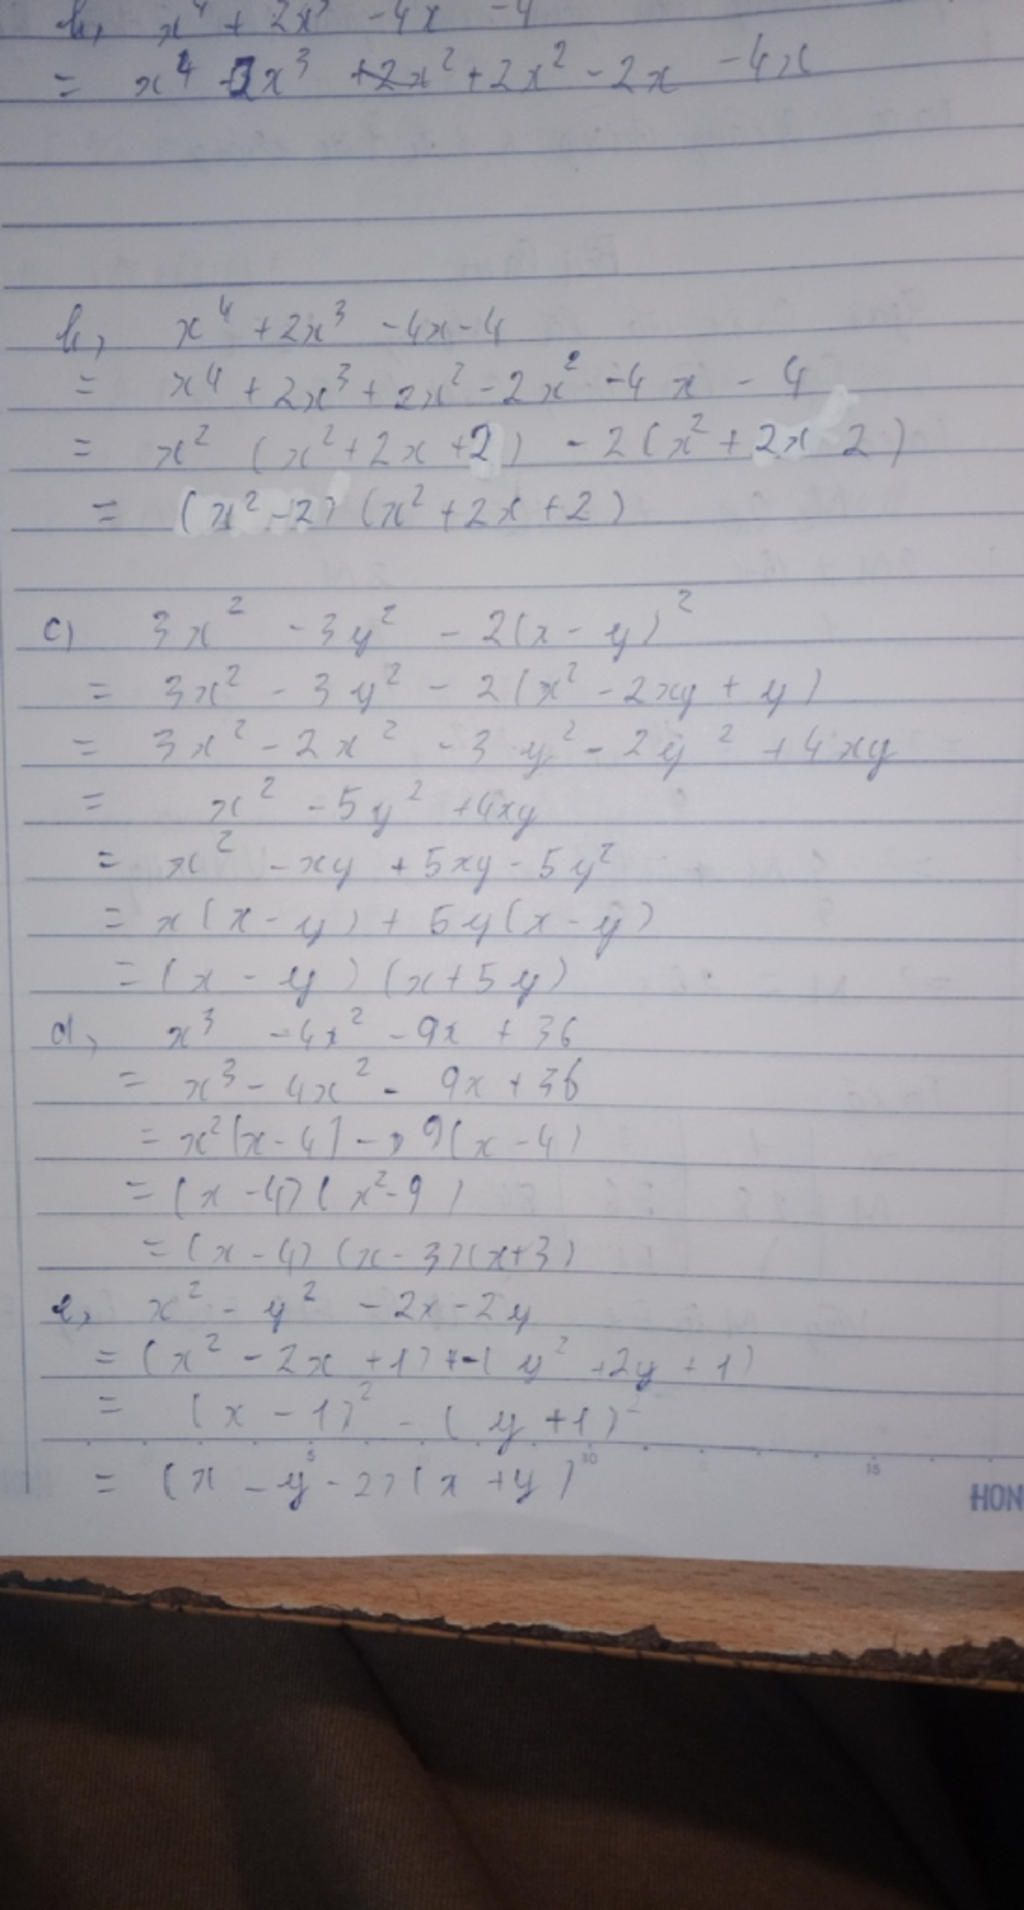 b, x⁴ + 2x³ - 4x - 4
= x⁴ + 2x³ + 2x² + 2x² - 2x - 4x
b, x⁴ + 2x³ - 4x - 4
= x⁴ + 2x³ + 2x² - 2x² - 4x - 4
= x² (x² + 2x + 2) - 2(x² + 2x 2)
= (x² - 2) (x² + 2x + 2)
c) 3x² - 3y² - 2(x - y)²
= 3x² - 3y² - 2(x² - 2xy + y)
= 3x² - 2x² - 3y² - 2y² + 4xy
= x² - 5y² + 4xy
= x² - xy + 5xy - 5y²
= x(x - y) + 5y(x - y)
= (x - y) (x + 5y)
d, x³ - 4x² - 9x + 36
= x³ - 4x² - 9x + 36
= x²(x - 4) - 9(x - 4)
= (x - 4) (x² - 9)
= (x - 4) (x - 3)(x + 3)
e, x² - y² - 2x - 2y
= (x² - 2x + 1) - (y² + 2y + 1)
= (x - 1)² - (y + 1)²
5 10 15
= (x - y - 2)(x + y)
HON